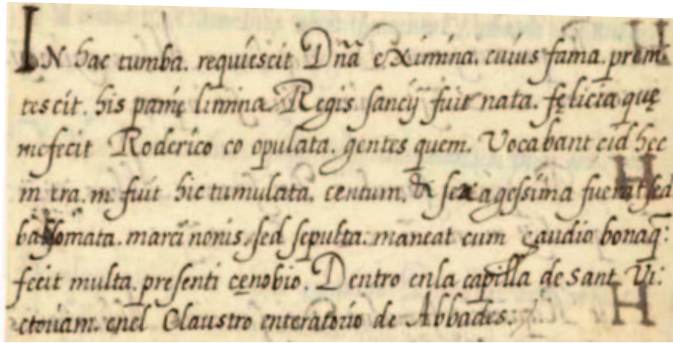 IN hac tumba. requiescit Dñã eXimina. cuius fama. prem
tescit. his pamę limina. Regis. sancij fuit nata. fęlicia quę
mefecit Roderico co opulata. gentes quem. Vocabant cid hec
in era. m fuit hic tumulata. centum, & sexagessima fuerat sed
balsomata. marci nonis, sed sepulta: maneat cum gaudio bonaq̃:
fecit multa. presenti cenobio. Dentro enla capilla de sant Vi:
ctoriam. enel Claustro enteratorio de Abbades.